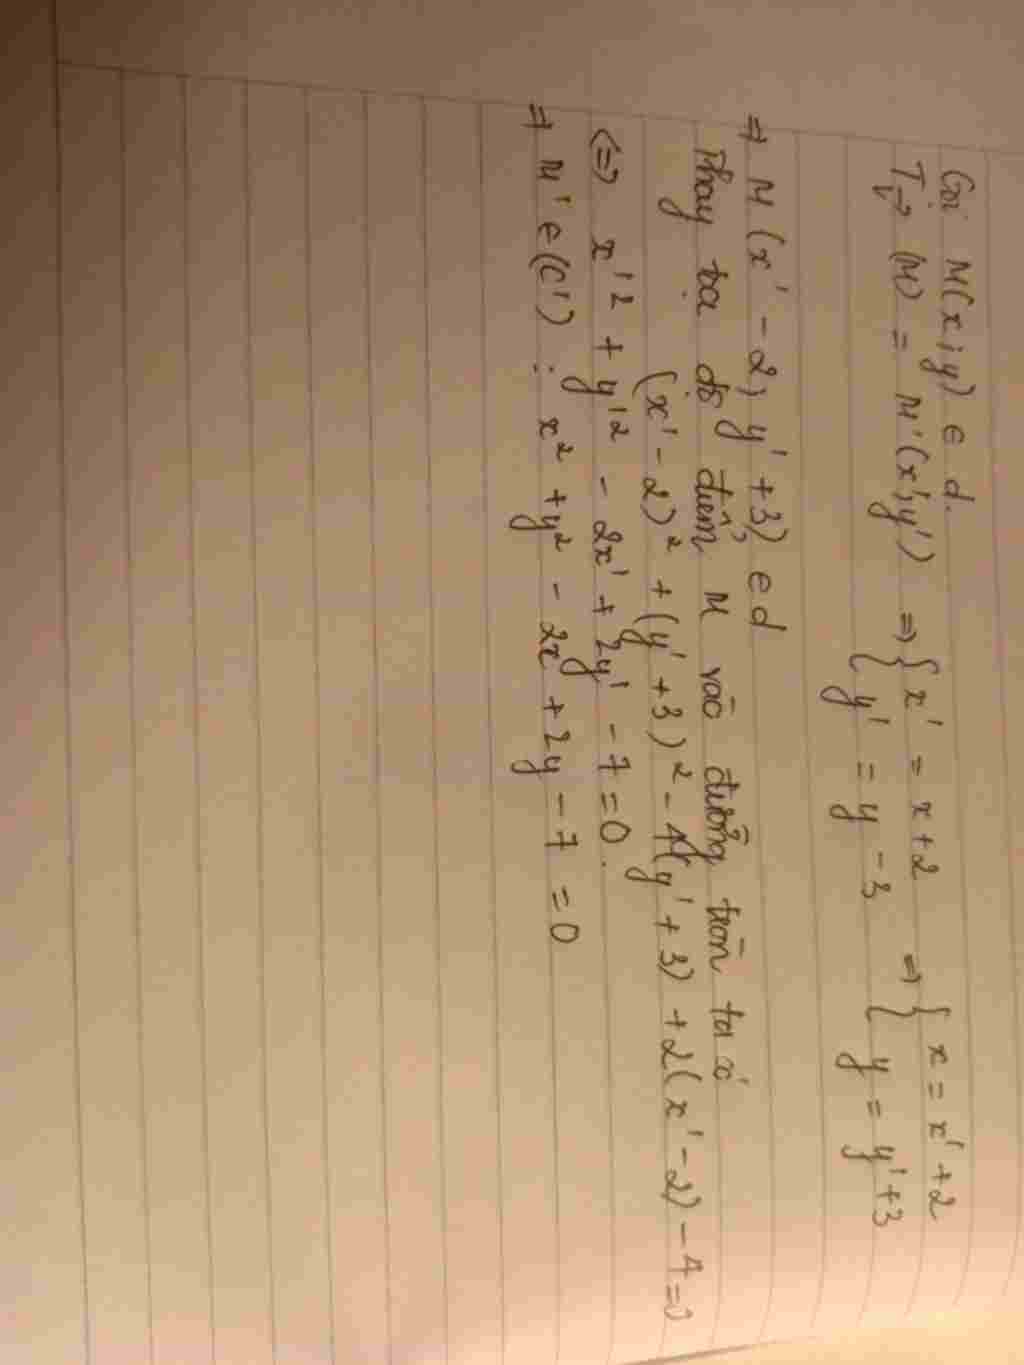 Gọi M(x;y) ∈ d.
T_v⃗ (M) = M'(x';y') ⇒ { x' = x+2 ; y' = y - 3 ⇒ { x = x' + 2 ; y = y' + 3
⇒ M (x' - 2, y' + 3) ∈ d
Thay tọa độ điểm M vào đường tròn ta có
(x' - 2)² + (y' + 3)² - 4(y' + 3) + 2(x' - 2) - 4 = 0
<=> x'² + y'² - 2x' + 2y' - 7 = 0.
⇒ M' ∈ (C') : x² + y² - 2x + 2y - 7 = 0